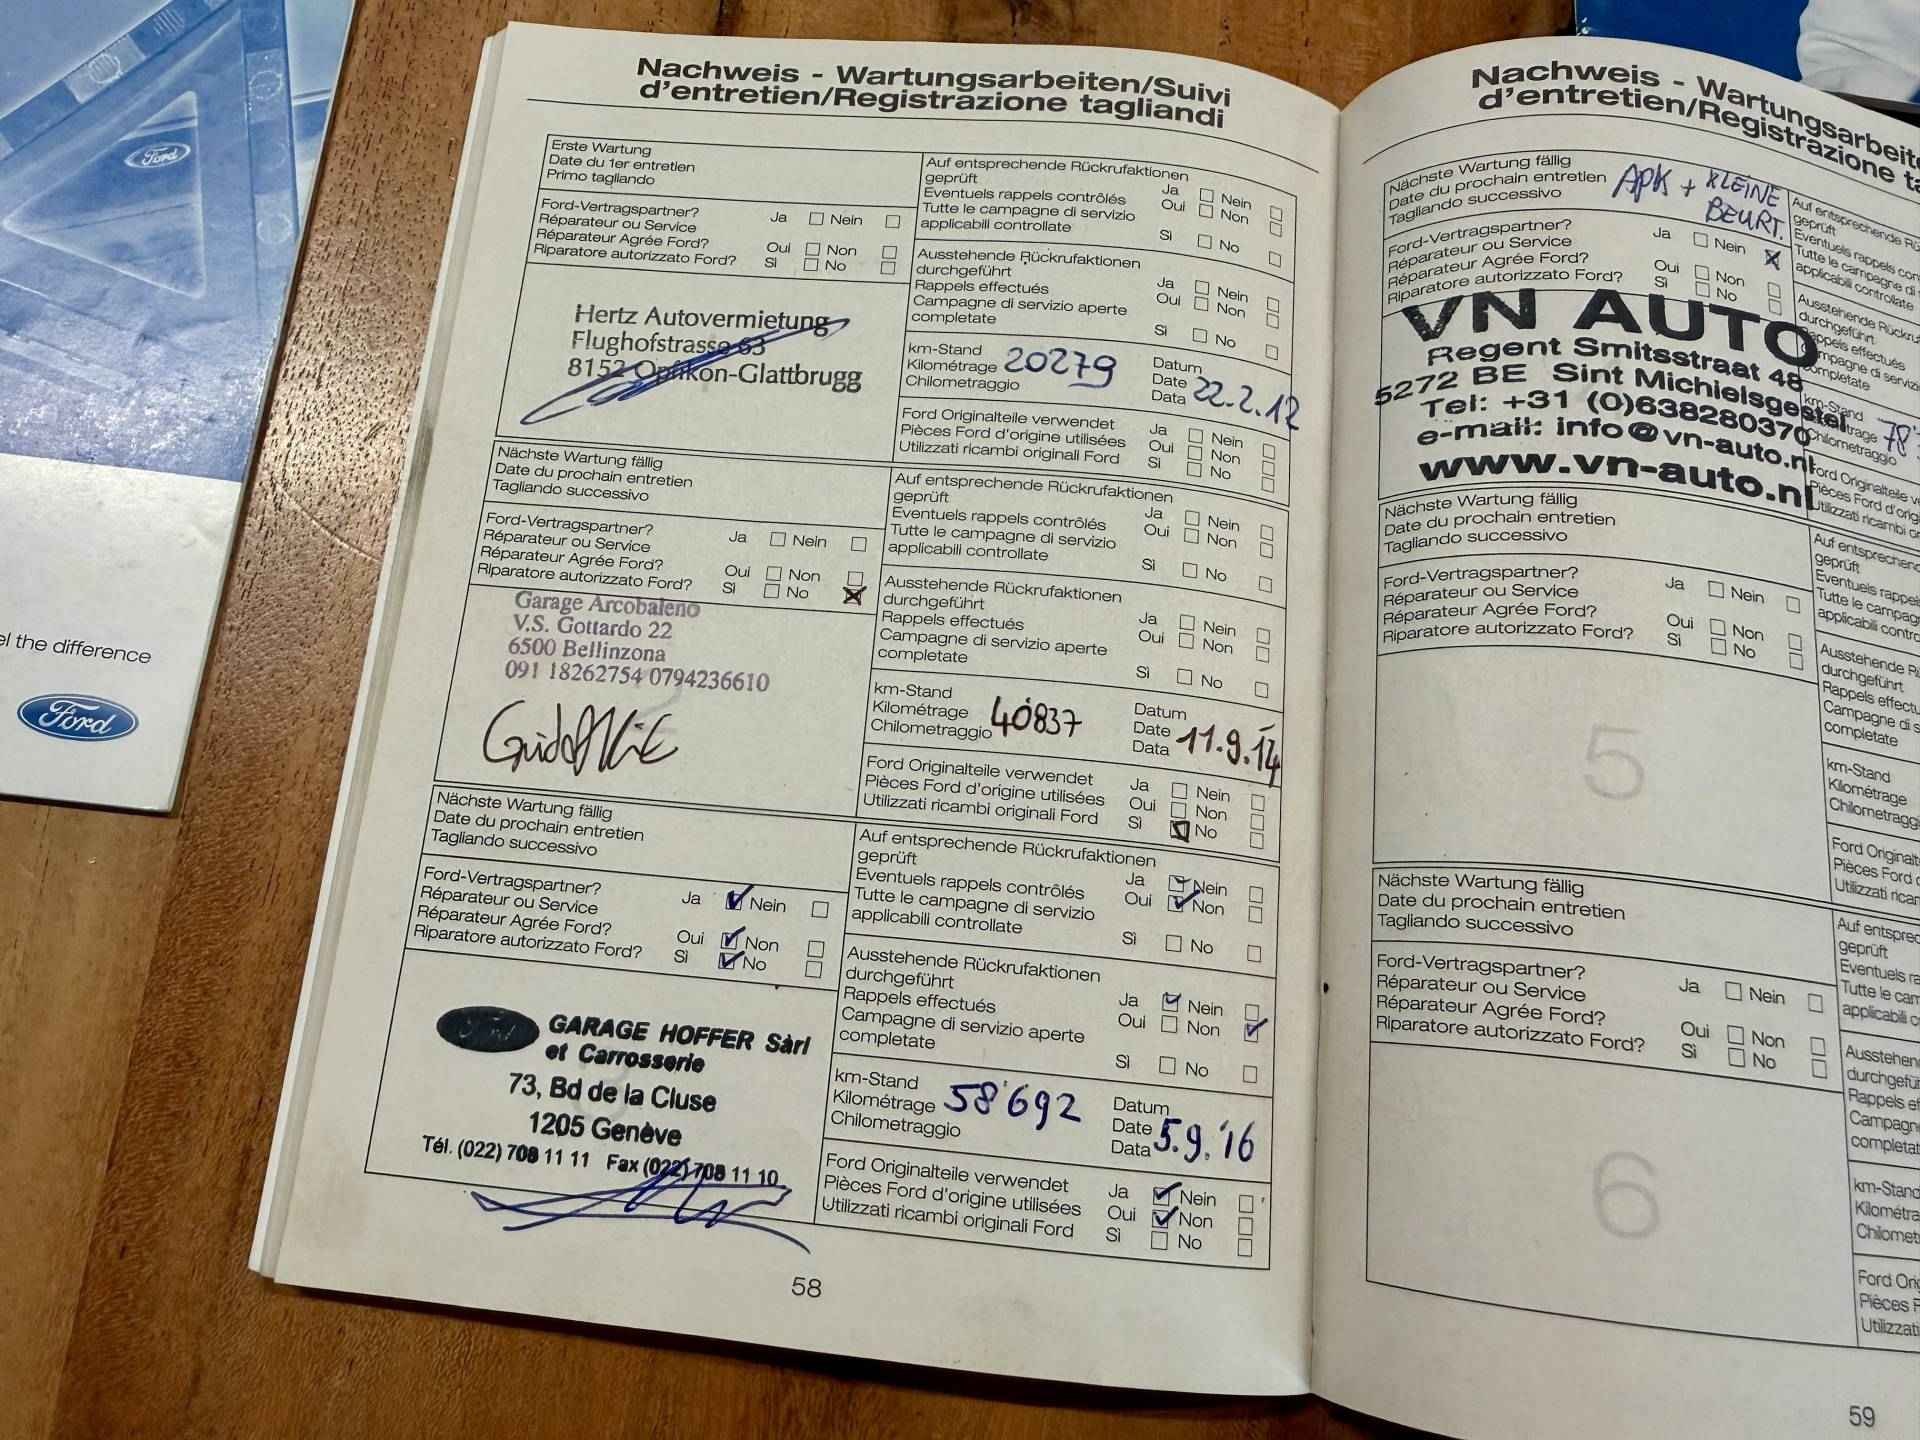 Ford
el the difference
Ford
Nachweis - Wartungsarbeiten/Suivi
d'entretien/Registrazione tagliandi
Erste Wartung
Date du 1er entretien
Primo tagliando
Ford-Vertragspartner?
Réparateur ou Service
Réparateur Agrée Ford?
Riparatore autorizzato Ford?
Ja Nein
Oui Non
Sì No
Hertz Autovermietung
Flughofstrasse 63
8152 Opfikon-Glattbrugg
Auf entsprechende Rückrufaktionen
geprüft
Eventuels rappels contrôlés
Tutte le campagne di servizio
applicabili controllate
Ja Nein
Oui Non
Sì No
Ausstehende Rückrufaktionen
durchgeführt
Rappels effectués
Campagne di servizio aperte
completate
Ja Nein
Oui Non
Sì No
km-Stand
Kilométrage
Chilometraggio
20279
Datum
Date
Data
22.2.12
Ford Originalteile verwendet
Pièces Ford d'origine utilisées
Utilizzati ricambi originali Ford
Ja Nein
Oui Non
Sì No
Nächste Wartung fällig
Date du prochain entretien
Tagliando successivo
Ford-Vertragspartner?
Réparateur ou Service
Réparateur Agrée Ford?
Riparatore autorizzato Ford?
Ja Nein
Oui Non
Sì No
Garage Arcobaleno
V.S. Gottardo 22
6500 Bellinzona
091 18262754 0794236610
Auf entsprechende Rückrufaktionen
geprüft
Eventuels rappels contrôlés
Tutte le campagne di servizio
applicabili controllate
Ja Nein
Oui Non
Sì No
Ausstehende Rückrufaktionen
durchgeführt
Rappels effectués
Campagne di servizio aperte
completate
Ja Nein
Oui Non
Sì No
km-Stand
Kilométrage
Chilometraggio
40837
Datum
Date
Data
11.9.14
Ford Originalteile verwendet
Pièces Ford d'origine utilisées
Utilizzati ricambi originali Ford
Ja Nein
Oui Non
Sì No
Nächste Wartung fällig
Date du prochain entretien
Tagliando successivo
Ford-Vertragspartner?
Réparateur ou Service
Réparateur Agrée Ford?
Riparatore autorizzato Ford?
Ja Nein
Oui Non
Sì No
Ford
GARAGE HOFFER Sàrl
et Carrosserie
73, Bd de la Cluse
1205 Genève
Tél. (022) 708 11 11 Fax (022) 708 11 10
Auf entsprechende Rückrufaktionen
geprüft
Eventuels rappels contrôlés
Tutte le campagne di servizio
applicabili controllate
Ja Nein
Oui Non
Sì No
Ausstehende Rückrufaktionen
durchgeführt
Rappels effectués
Campagne di servizio aperte
completate
Ja Nein
Oui Non
Sì No
km-Stand
Kilométrage
Chilometraggio
58'692
Datum
Date
Data
5.9.'16
Ford Originalteile verwendet
Pièces Ford d'origine utilisées
Utilizzati ricambi originali Ford
Ja Nein
Oui Non
Sì No
58
Nachweis - Wartungsarbeite
d'entretien/Registrazione ta
Nächste Wartung fällig
Date du prochain entretien
Tagliando successivo
APK + KLEINE
BEURT.
Ford-Vertragspartner?
Réparateur ou Service
Réparateur Agrée Ford?
Riparatore autorizzato Ford?
Ja Nein
Oui Non
Sì No
VN AUTO
Regent Smitsstraat 48
5272 BE Sint Michielsgestel
Tel: +31 (0)638280370
e-mail: info@vn-auto.nl
www.vn-auto.nl
Auf entsprechende Rü
geprüft
Eventuels rappels con
Tutte le campagne di
applicabili controllate
Ausstehende Rückruf
durchgeführt
Rappels effectués
Campagne di servizi
completate
km-Stand
Kilométrage
Chilometraggio
78'
Ford Originalteile v
Pièces Ford d'orig
Utilizzati ricambi or
Nächste Wartung fällig
Date du prochain entretien
Tagliando successivo
Ford-Vertragspartner?
Réparateur ou Service
Réparateur Agrée Ford?
Riparatore autorizzato Ford?
Ja Nein
Oui Non
Sì No
5
Auf entsprechend
geprüft
Eventuels rappels
Tutte le campagn
applicabili contro
Ausstehende Rü
durchgeführt
Rappels effectu
Campagne di s
completate
km-Stand
Kilométrage
Chilometraggi
Ford Originalt
Pièces Ford d
Utilizzati ricam
Nächste Wartung fällig
Date du prochain entretien
Tagliando successivo
Ford-Vertragspartner?
Réparateur ou Service
Réparateur Agrée Ford?
Riparatore autorizzato Ford?
Ja Nein
Oui Non
Sì No
6
Auf entsprec
geprüft
Eventuels ra
Tutte le cam
applicabili c
Ausstehen
durchgefü
Rappels ef
Campagn
completat
km-Stand
Kilométra
Chilomet
Ford Orig
Pièces F
Utilizzati
59